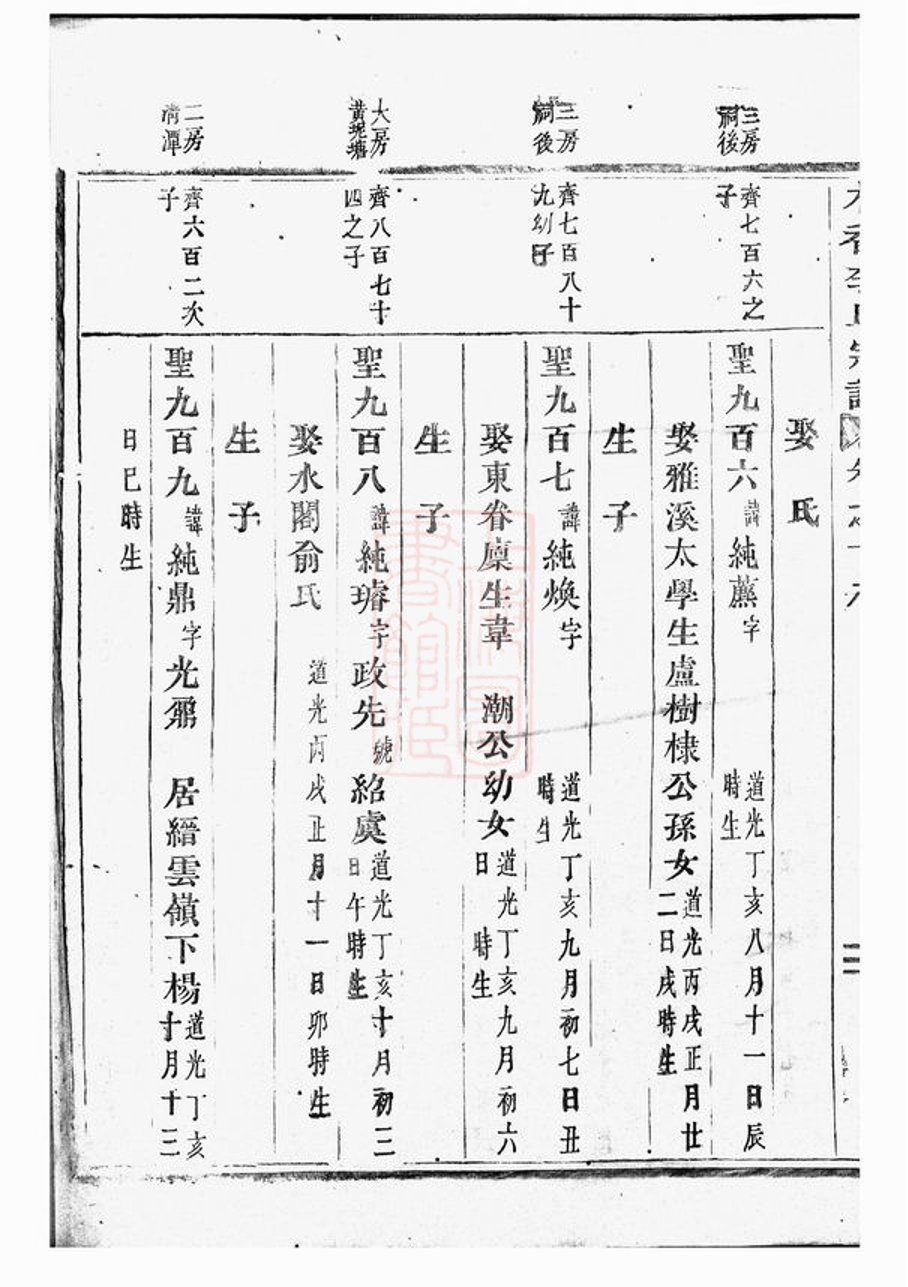 三房
祠後
齊七百六之
子
三房
祠後
齊七百八十
九幼子
大房
黃坭塘
齊八百七十
四之子
二房
清潭
齊六百二次
子
娶 氏
聖九百六諱純薰字 道光丁亥八月十一日辰
時生
娶雅溪太學生盧樹棣公孫女道光丙戌正月廿
二日戌時生
生 子
聖九百七諱純煥字 道光丁亥九月初七日丑
時生
娶東眷廩生韋 潮公幼女道光丁亥九月初六
日 時生
生 子
聖九百八諱純璿字政先號紹虞道光丁亥十月初三
日午時生
娶水閣俞氏 道光丙戌正月十一日卯時生
生 子
聖九百九諱純鼎字光鼐 居縉雲嶺下楊道光丁亥
十月十三
日巳時生